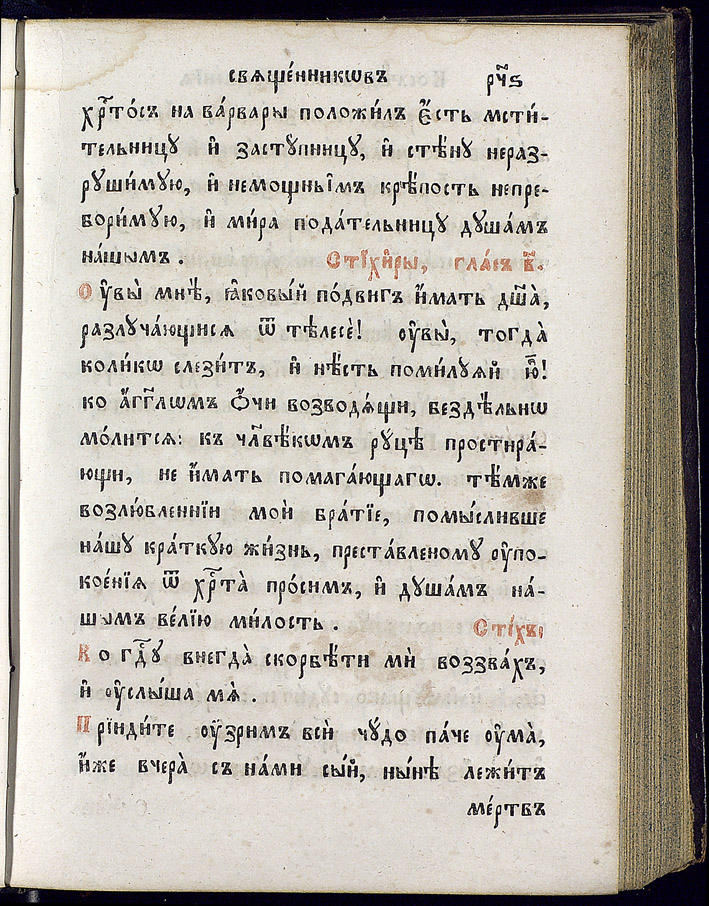 свѧще́нникѡвъ рч҃ѕ
хрⷭ҇то́съ на ва́рвары положи́лъ є҆́сть мсти́-
тельницꙋ и҆ застꙋ́пницꙋ, и҆ стѣ́нꙋ нераз-
рꙋши́мꙋю, и҆ немощны̑мъ крѣ́пость непре-
бори́мꙋю, и҆ ми́ра пода́тельницꙋ дꙋша́мъ
на́шымъ .
Стїхи̑ры, гла́съ в҃.
Оу҆вы̀ мнѣ̀, ꙗ҆ковы́й по́двигъ и҆́мать дꙋша̀,
разлꙋча́ющисѧ ѿ тѣлесѐ! оу҆вы̀, тогда̀
коли́кѡ слези́тъ, и҆ нѣ́сть поми́лꙋѧй ю҆̀!
ко а҆́гг҃лѡмъ ѻ҆́чи возводѧ́щи, бездѣ́льнѡ
мо́литсѧ: къ чл҃вѣ́кѡмъ рꙋ́цѣ простира́-
ющи, не и҆́мать помага́ющагѡ. тѣ́мже
возлю́бленнїи моѝ бра́тїе, помы́сливше
на́шꙋ кра́ткꙋю жи́знь, преста́вленомꙋ оу҆по-
кое́нїѧ ѿ хрⷭ҇та̀ про́симъ, и҆ дꙋша́мъ на́-
шымъ ве́лїю ми́лость .
Сті́хъ:
Ко гдⷭ҇ꙋ внегда̀ скорбѣ́ти мѝ воззва́хъ,
и҆ оу҆слы́ша мѧ̀
Прїиди́те оу҆́зримъ всѝ чꙋ́до па́че оу҆ма̀,
и҆́же вчера̀ съ на́ми сы́й, ны́нѣ лежи́тъ
ме́ртвъ